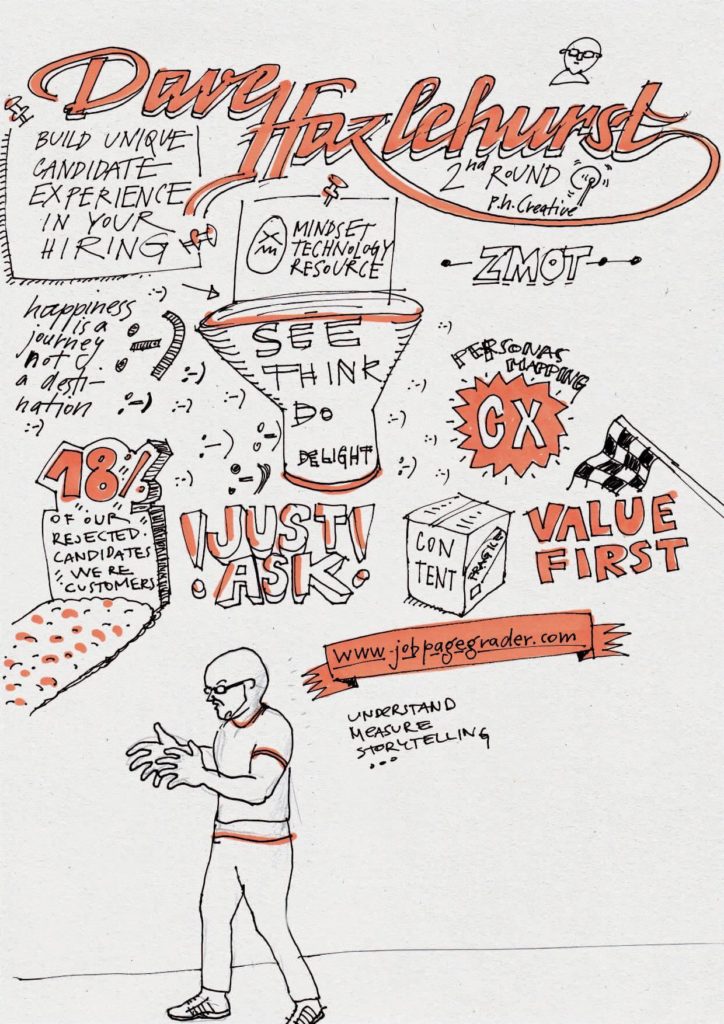 Dave
Hazlehurst
2nd ROUND
P.h. Creative
BUILD UNIQUE
CANDIDATE
EXPERIENCE
IN YOUR
HIRING
MINDSET
TECHNOLOGY
RESOURCE
ZMOT
happiness
is a
journey
not
a desti-
nation
:-)
SEE
THINK
DO
DELIGHT
PERSONAS
MAPPING
CX
18%
OF OUR
REJECTED
CANDIDATES
WERE
CUSTOMERS
!JUST!
ASK
CON
TENT
FRAGILE
VALUE
FIRST
www.jobpagegrader.com
UNDERSTAND
MEASURE
STORYTELLING
...